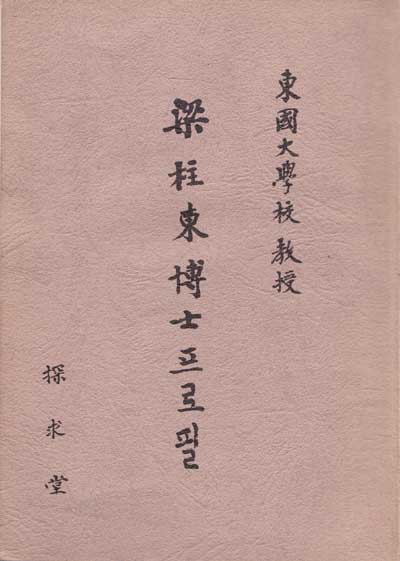 東國大學校 敎授
梁柱東博士프로필
探求堂